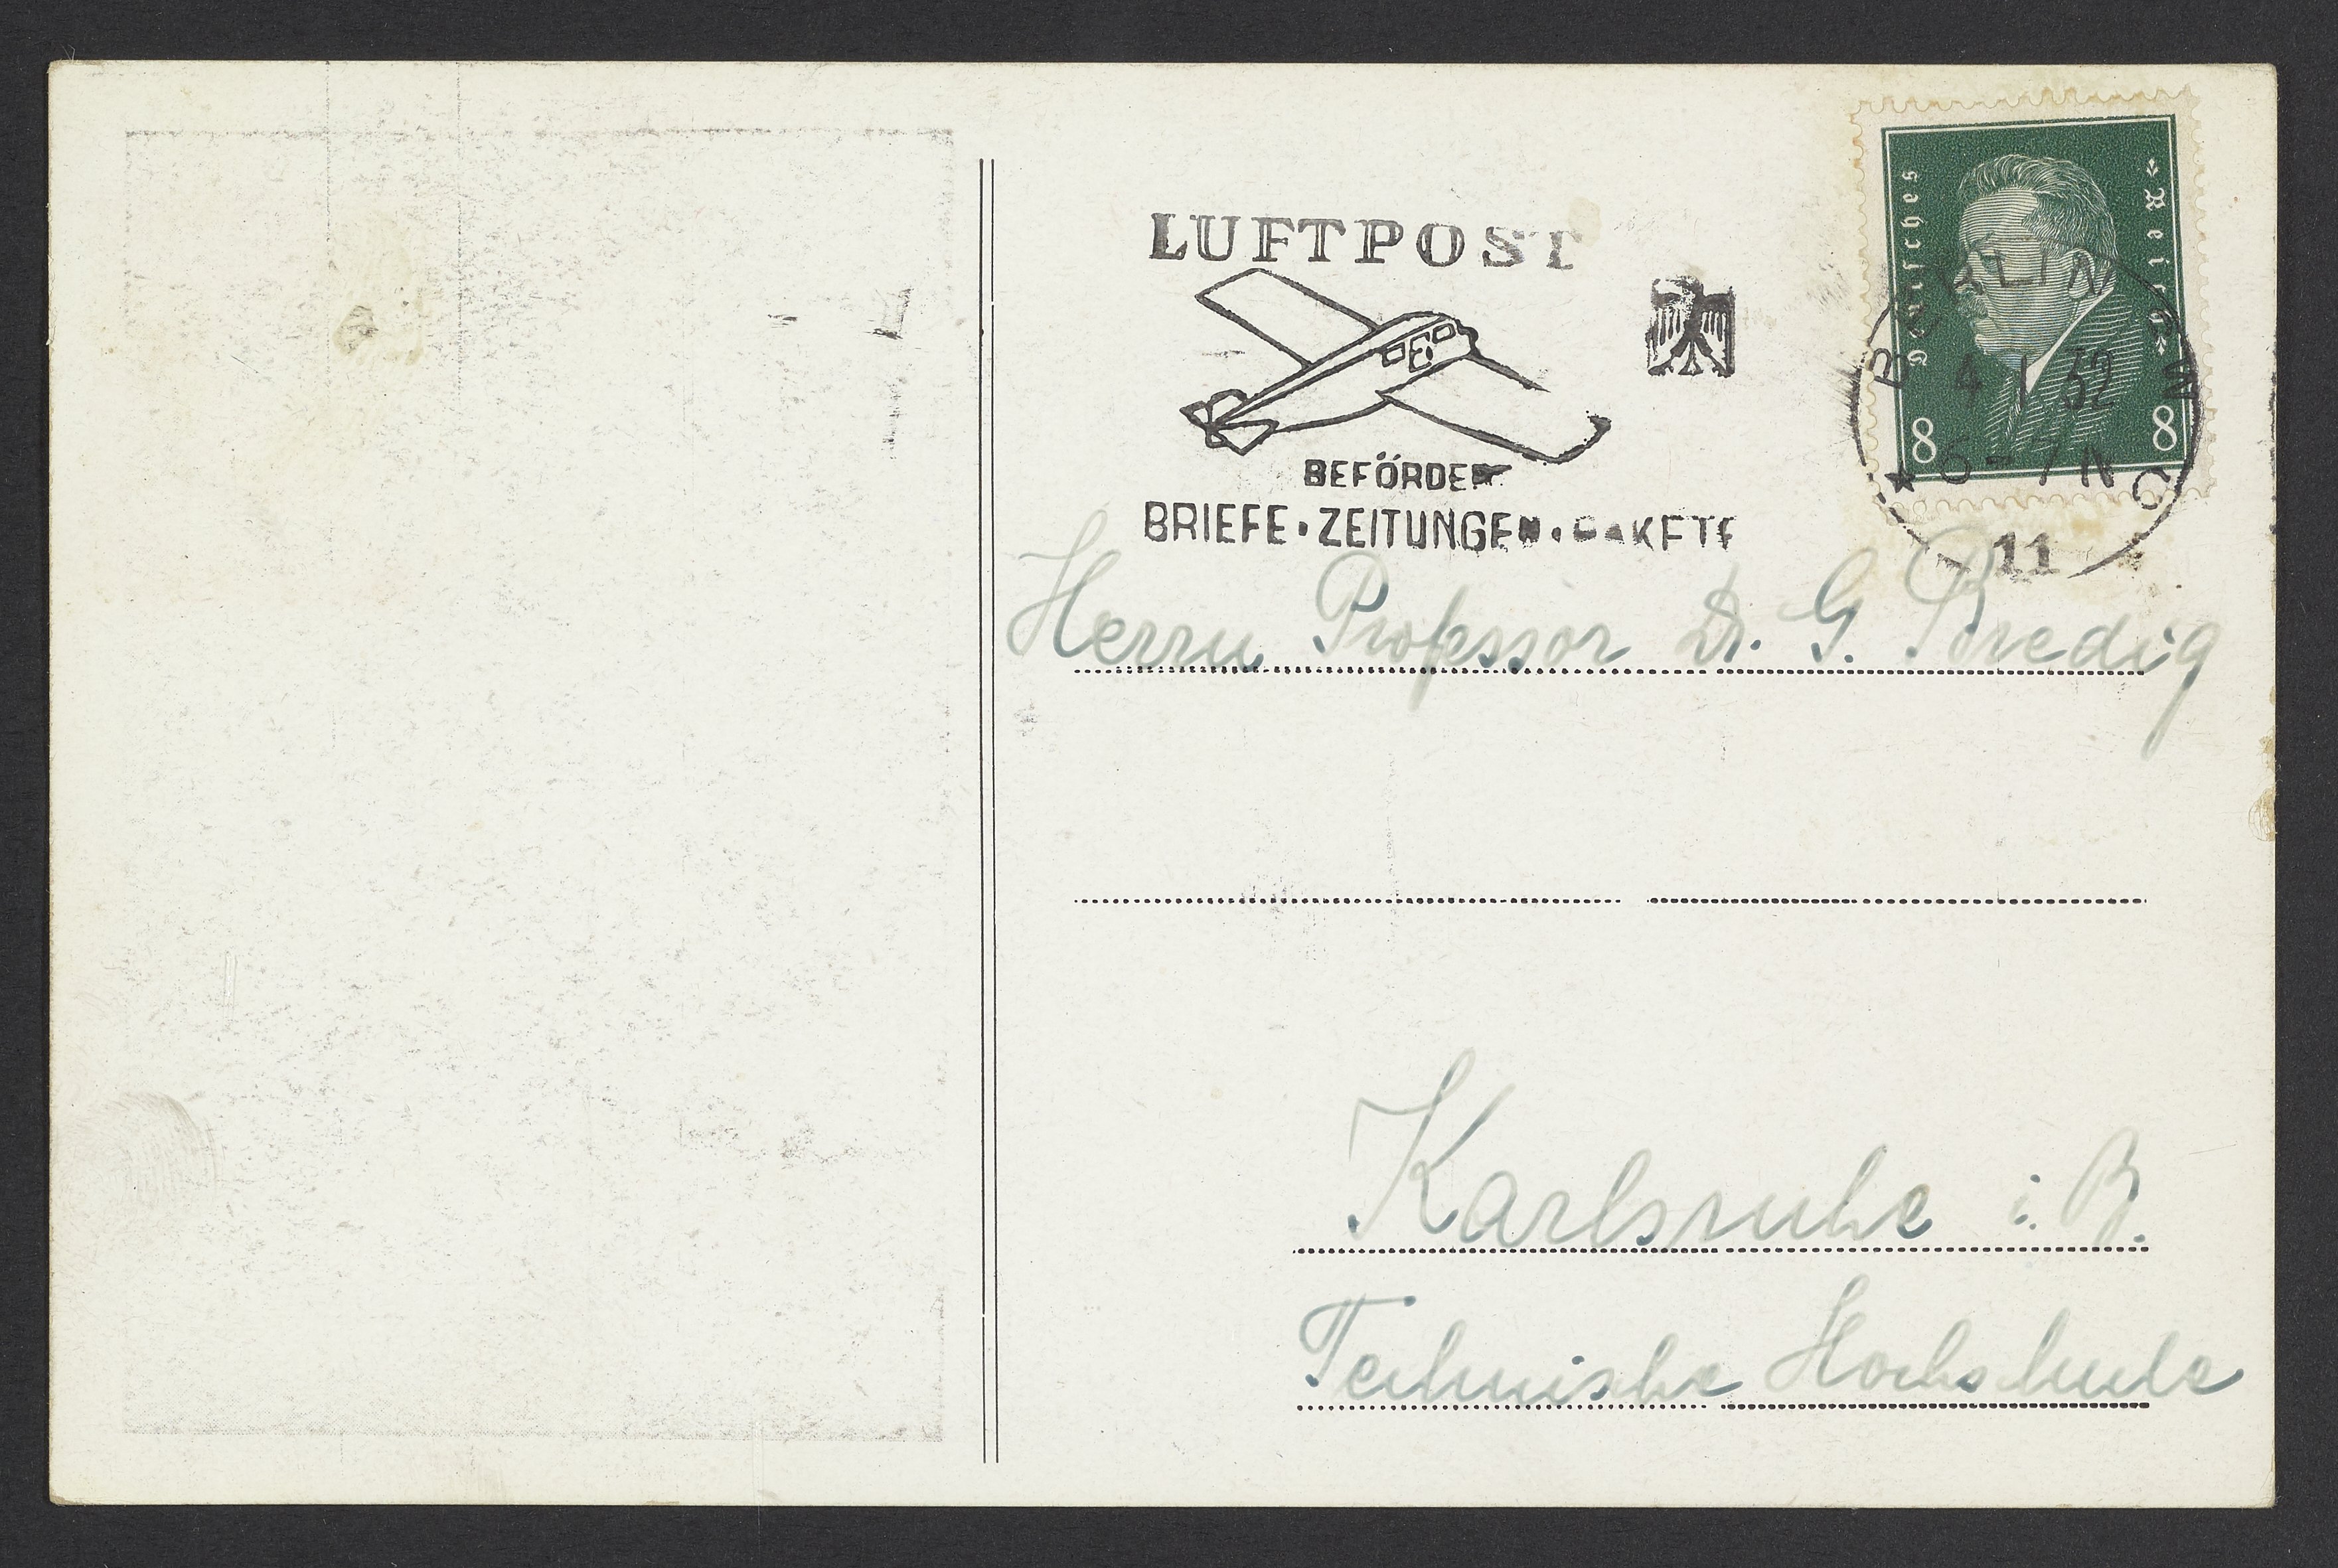 LUFTPOST
BEFÖRDERT
BRIEFE · ZEITUNGEN · PAKETE
Deutsches Reich
8 8
BERLIN NW
4 1 32
6-7N
C
11
Herrn Professor Dr. G. Bredig
Karlsruhe i. B.
Technische Hochschule